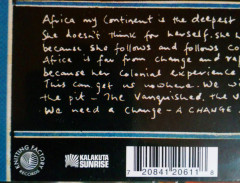 Africa my Continent is the deepest
She doesn't think for herself. She
because she follows and follows
Africa is far from change and
because her Colonial experience
This can get us nowhere. We
the pit - The Vanquished, the
We need a Change - A CHANGE
KNITTING FACTORY
RECORDS
KALAKUTA
SUNRISE
7 20841 20611 8